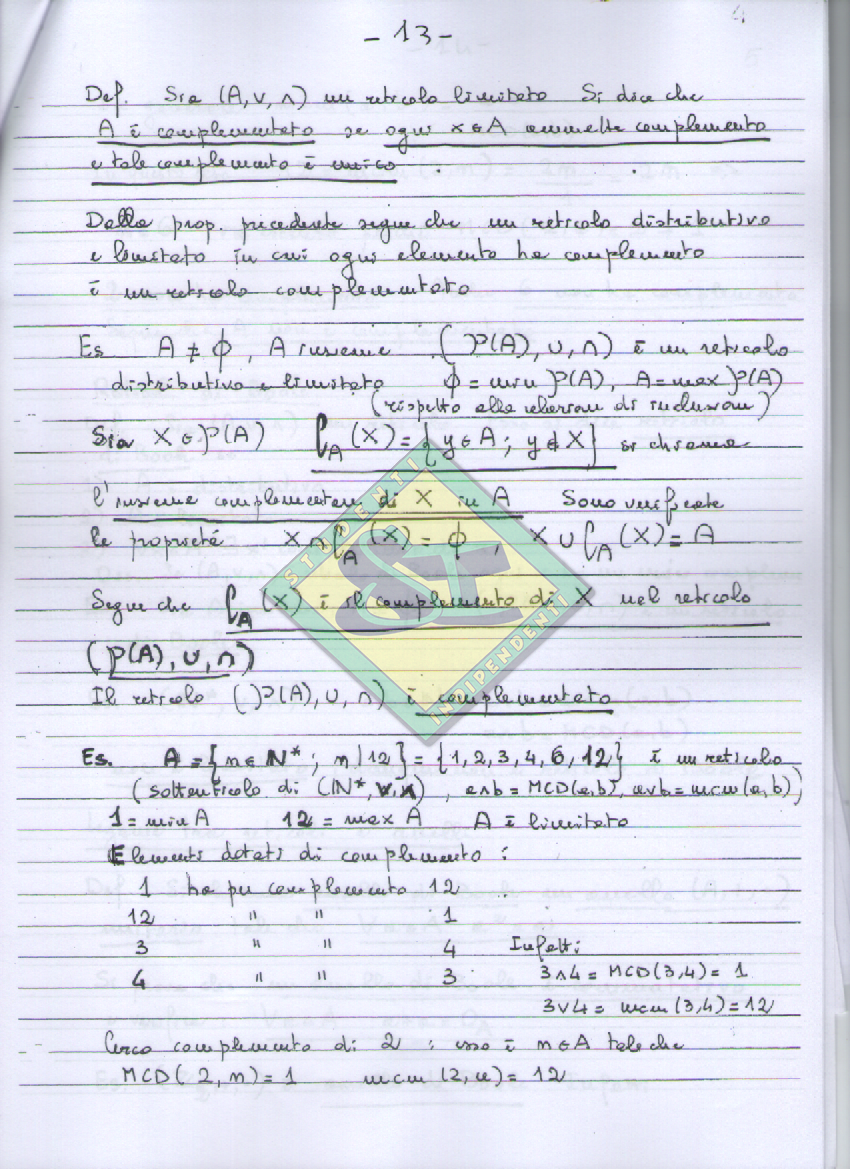 - 13 -
Def. Sia (A, ∨, ∧) un reticolo limitato Si dice che
A è complementato se ogni x ∈ A ammette complemento
e tale complemento è unico
Dalla prop. precedente segue che un reticolo distributivo
e limitato in cui ogni elemento ha complemento
è un reticolo complementato
Es A ≠ ϕ, A insieme (P(A), ∪, ∩) è un reticolo
distributivo e limitato ϕ = min P(A), A = max P(A)
(rispetto alla relazione di inclusione)
Sia X ∈ P(A) ∁_A (X) = {y ∈ A ; y ∉ X} si chiama
l'insieme complementare di X in A Sono verificate
le proprietà X ∩ ∁_A (X) = ϕ, X ∪ ∁_A (X) = A
Segue che ∁_A (X) è il complemento di X nel reticolo
(P(A), ∪, ∩)
Il reticolo (P(A), ∪, ∩) è complementato
STUDENTI
INDIPENDENTI
Es. A = {n ∈ N* ; n | 12} = {1, 2, 3, 4, 6, 12} è un reticolo
(sottoreticolo di (N*, ∨, ∧), a∧b = MCD(a,b), a∨b = mcm(a,b))
1 = min A 12 = max A A è limitato
Elementi dotati di complemento :
1 ha per complemento 12
12 " " 1
3 " " 4 Infatti
4 " " 3 3∧4 = MCD(3,4) = 1
3∨4 = mcm(3,4) = 12
Cerco complemento di 2 : esso è n ∈ A tale che
MCD(2, n) = 1 mcm(2, n) = 12